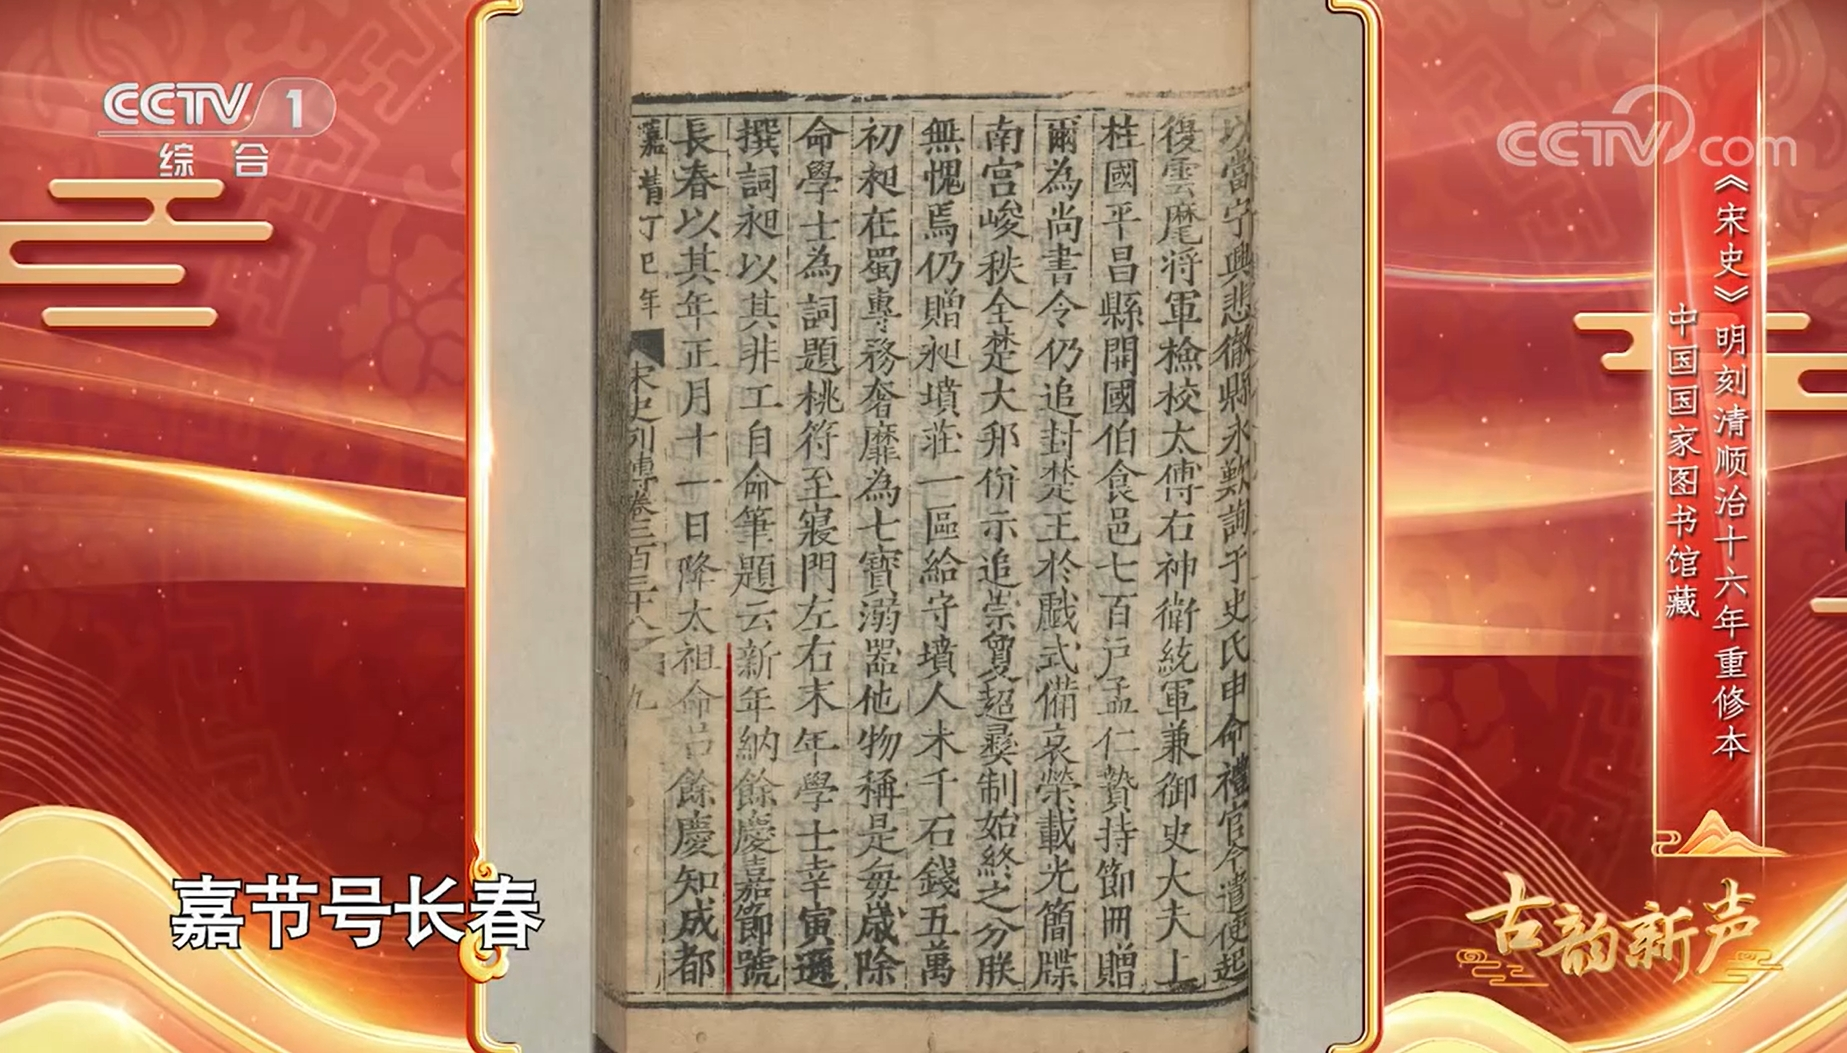 CCTV 1
综合
CCTV com
《宋史》明刻清顺治十六年重修本
中国国家图书馆藏
當宁興悲徹縣永歎詢于史氏申命禮官今遣使起
復雲麾將軍檢校太傅右神衛統軍兼御史大夫上
柱國平昌縣開國伯食邑七百戸孟仁贄持節冊贈
爾為尚書令仍追封楚王於戲式備哀榮載光簡牒
南宮峻秩全楚大邦併示追崇寔超彜制始終之分朕
無愧焉仍贈昶墳莊一區給守墳人米千石錢五萬
初昶在蜀專務奢靡為七寶溺器他物稱是每歳除
命學士為詞題桃符至寢門左右末年學士幸寅遜
撰詞昶以其非工自命筆題云新年納餘慶嘉節號
長春以其年正月十一日降太祖命吕餘慶知成都
嘉靖丁巳年
宋史列傳卷三百三十八
九
嘉节号长春
古韵新声